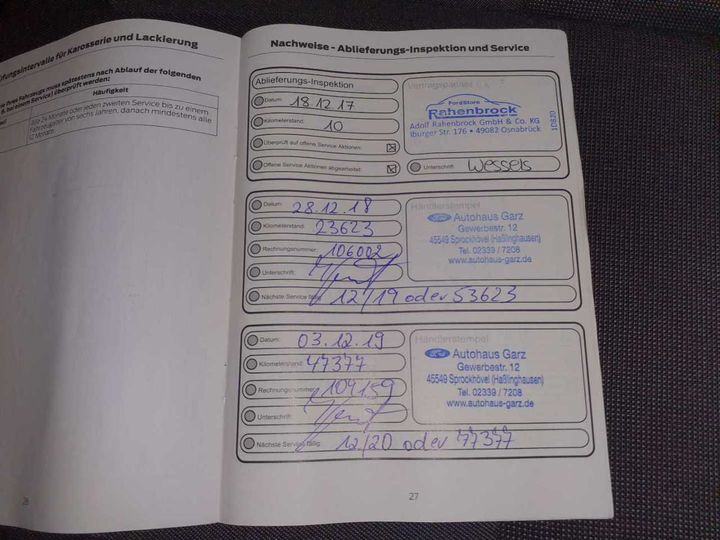 üfungsintervalle für Karosserie und Lackierung
Ihres Fahrzeugs muss spätestens nach Ablauf der folgenden
. bei einem Service) überprüft werden:
Häufigkeit
Alle 24 Monate oder jeden zweiten Service bis zu einem
Fahrzeugalter von sechs Jahren, danach mindestens alle
12 Monate.
Nachweise - Ablieferungs-Inspektion und Service
Ablieferungs-Inspektion
Datum: 18.12.17
Kilometerstand: 10
Überprüft auf offene Service Aktionen:
Offene Service Aktionen abgearbeitet:
Vertragspartner
FordStore
Rahenbrock
Adolf Rahenbrock GmbH & Co. KG
Iburger Str. 176 • 49082 Osnabrück
Unterschrift: Wessels
Datum: 28.12.18
Kilometerstand: 23623
Rechnungsnummer: 106002
Unterschrift:
Nächste Service fällig: 12/19 oder 53623
Händlerstempel
Ford Autohaus Garz
Gewerbestr. 12
45549 Sprockhövel (Haßlinghausen)
Tel. 02339 / 7208
www.autohaus-garz.de
Datum: 03.12.19
Kilometerstand: 47377
Rechnungsnummer: 109159
Unterschrift:
Nächste Service fällig: 12/20 oder 77377
Händlerstempel
Ford Autohaus Garz
Gewerbestr. 12
45549 Sprockhövel (Haßlinghausen)
Tel. 02339 / 7208
www.autohaus-garz.de
27